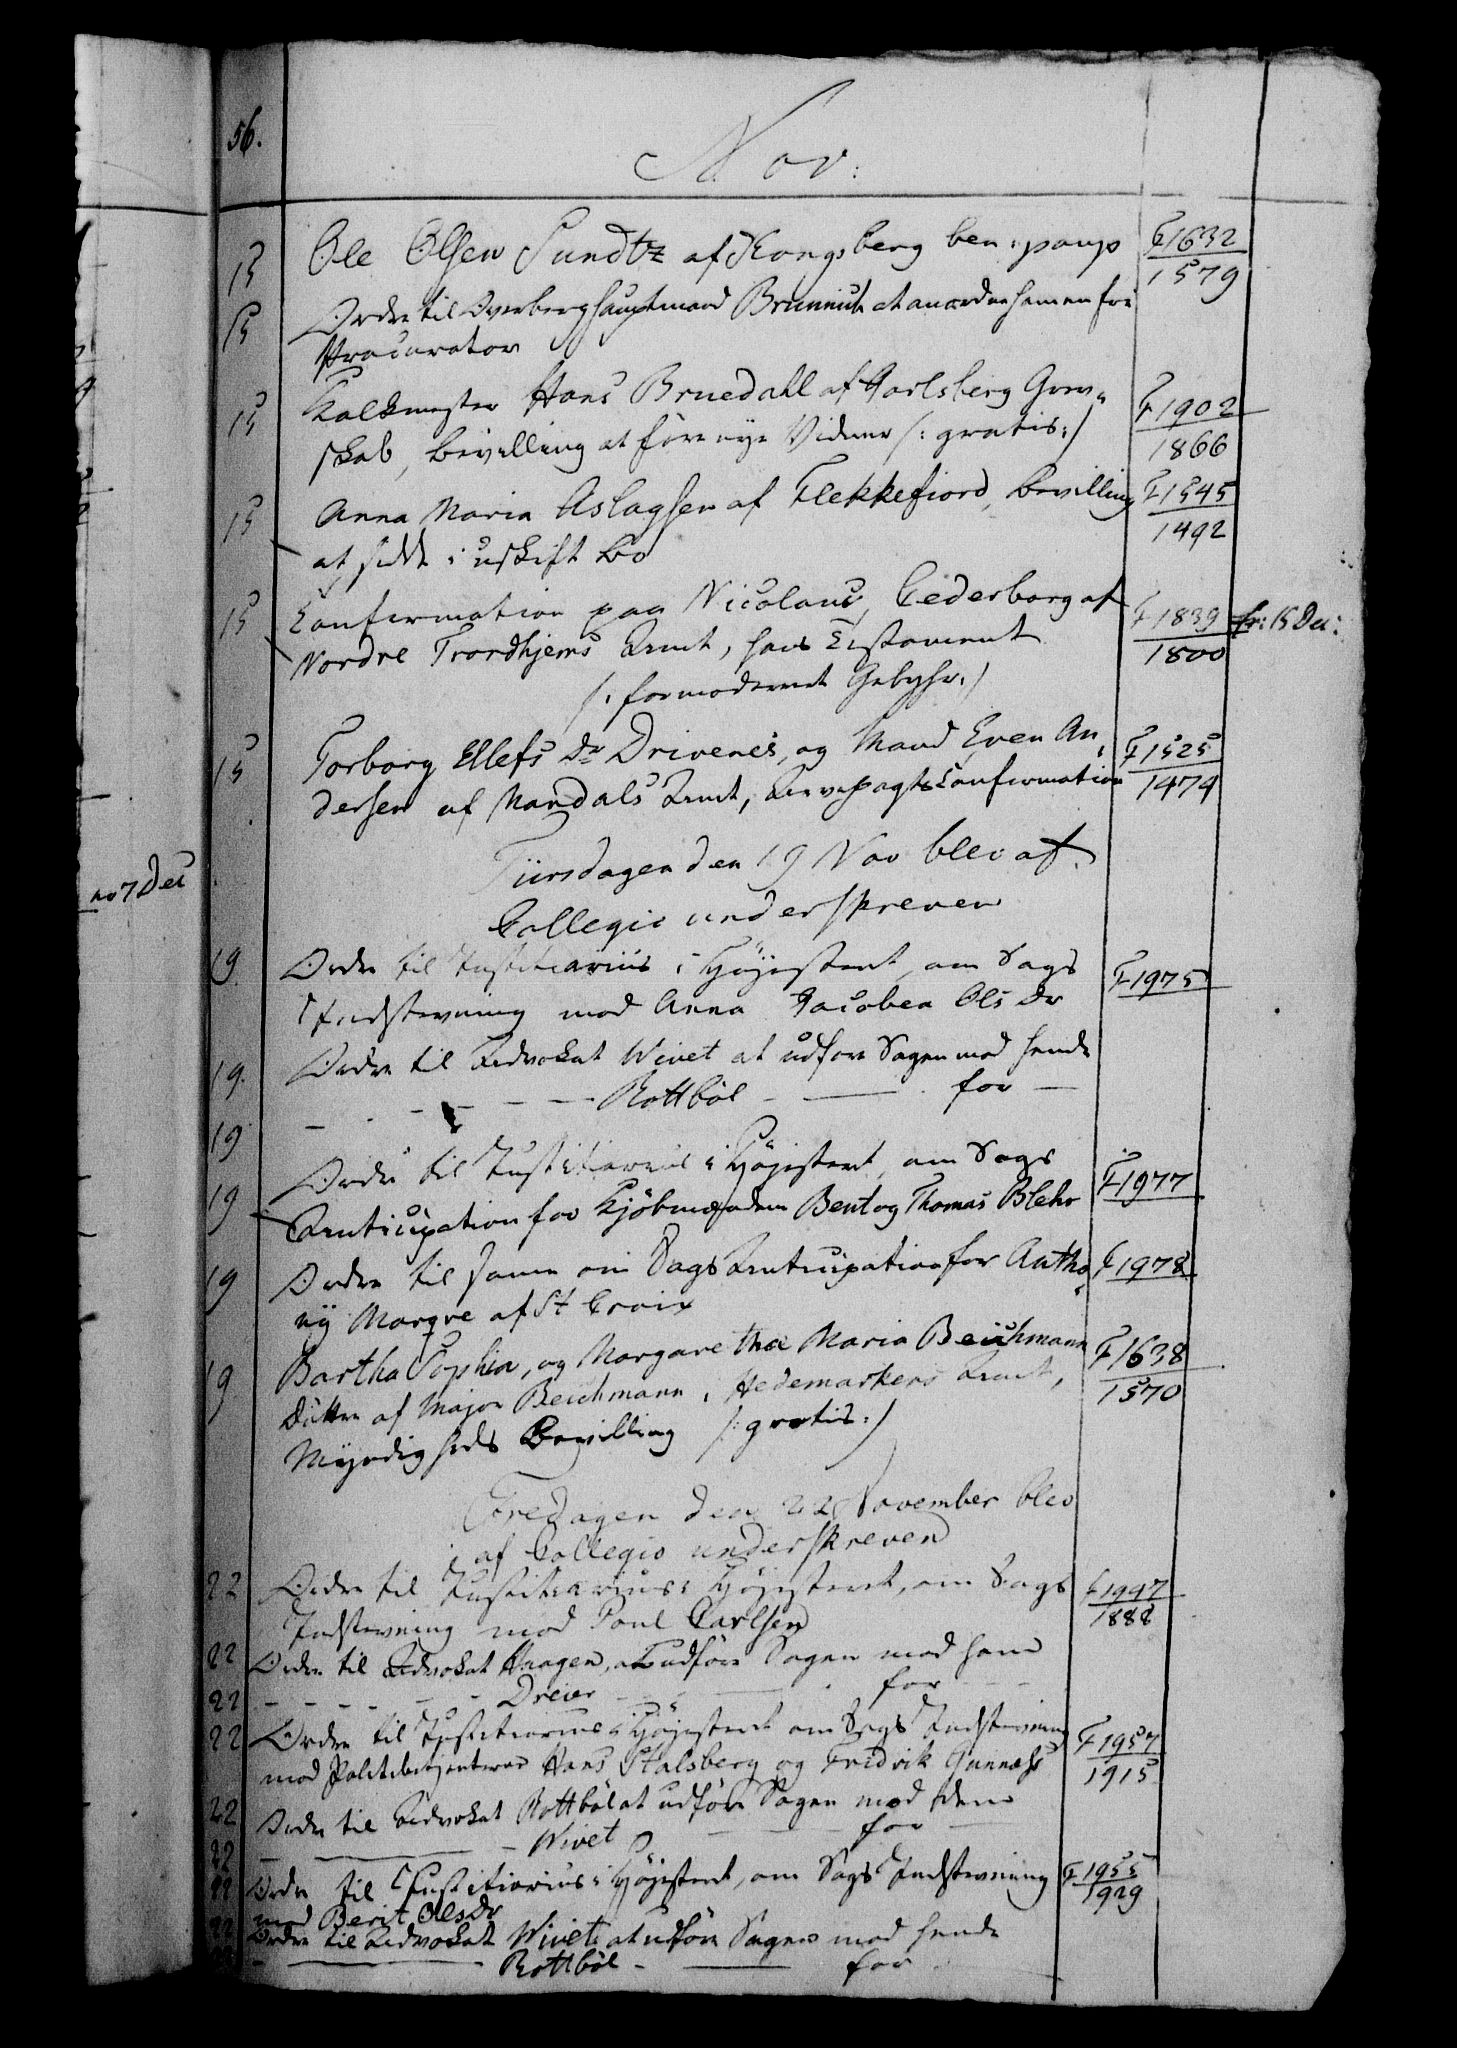 56.
Nov:
15 Ole Olsen Sundtz af Kongsberg ben: paup F 1632
1579
15 Ordre til Overberghauptmand Brünnich at anordne ham en fri
Procurator
15 Kalkmester Hans Bruedahl af Jarlsberg Grev-
skab, bevilling at føre nye Vidner /: gratis :/ F 1902
1866
15 Anna Maria Aslagsen af Flekkefiord, bevilling F 1545
at sidde i uskift bo 1492
15 Confirmation paa Nicolaus Cederborg af
Nordre Trondhjems Amt, hans Testament F 1839 fr: 15 Dec:
1800
/: formodent Gebyhr :/
15 Torborg Ellefs Dr Drivenes, og Mand Even An- F 1525
dersen af Mandals Amt, Arvepagts Confirmation 1474
Tiirsdagen den 19 Nov blev af
Collegio underskreven
no 7 Dec
19. Ordre til Justitiarius i Høyesteret, om Sags F 1975
Indstevning mod Anna Jacobea Ols Dr
19. Ordre til Advokat Wivet at udføre Sagen mod hende
19 — — — — — Rottbøl — — for —
19 Ordre til Justitiarius i Høyesteret, om Sags F 1977
Anticipation for Kjøbmændene Bent og Thomas Blehr
19 Ordre til samme om Sags Anticipation for Antho- F 1978
ny Morgre af St Croix
19 Bartha Sophia, og Margaretha Maria Beichmann F 1638
Døttre af Major Beichmann i Hedemarkens Amt, 1570
Myndigheds Bevilling /: gratis :/
Fredagen den 22 November blev
af Collegio underskreven
22 Ordre til Justitiarius i Høyesteret, om Sags F 1947
Indstevning mod Poul Carlsen 1888
22 Ordre til Advokat Haagen, at udføre Sagen mod ham
22 — — — — — Dreier — — for — —
22 Ordre til Justitiarius i Høyesteret om Sags Indstevning F 1957
mod Politibetjenterne Hans Stalsberg og Fridrik Gunness 1915
22 Ordre til Advokat Rottbøl at udføre Sagen mod dem
22 — — — Wivet — — for —
22 Ordre til Justitiarius i Høyesteret, om Sags Indstevning F 1955
mod Berit OlsDr 1929
22 Ordre til Advokat Wivet at udføre Sagen mod hende
22 — — Rottbøl — — for